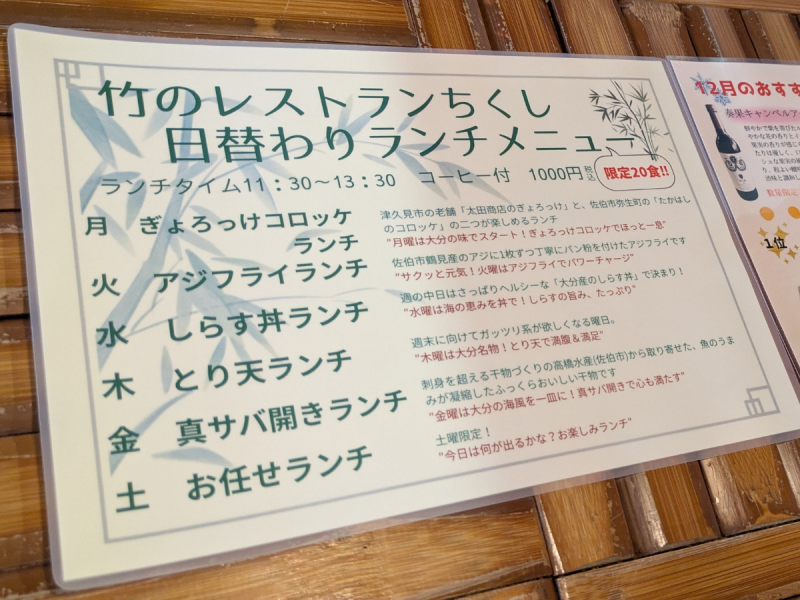 竹のレストランちくし
日替わりランチメニュー
ランチタイム11：30～13：30　コーヒー付　1000円税込
限定20食!!
月　ぎょろっけコロッケ
ランチ
津久見市の老舗「太田商店のぎょろっけ」と、佐伯市弥生町の「たかはし
のコロッケ」の二つが楽しめるランチ
"月曜は大分の味でスタート！ぎょろっけコロッケでほっと一息"
火　アジフライランチ
佐伯市鶴見産のアジに1枚ずつ丁寧にパン粉を付けたアジフライです
"サクッと元気！火曜はアジフライでパワーチャージ"
水　しらす丼ランチ
週の中日はさっぱりヘルシーな「大分産のしらす丼」で決まり！
"水曜は海の恵みを丼で！しらすの旨み、たっぷり"
木　とり天ランチ
週末に向けてガッツリ系が欲しくなる曜日。
"木曜は大分名物！とり天で満腹＆満足"
金　真サバ開きランチ
刺身を超える干物づくりの高橋水産(佐伯市)から取り寄せた、魚のうま
みが凝縮したふっくらおいしい干物です
"金曜は大分の海風を一皿に！真サバ開きで心も満たす"
土　お任せランチ
土曜限定！
"今日は何が出るかな？お楽しみランチ"
12月のおすす
奏果キャンベルア
数量限定
1位